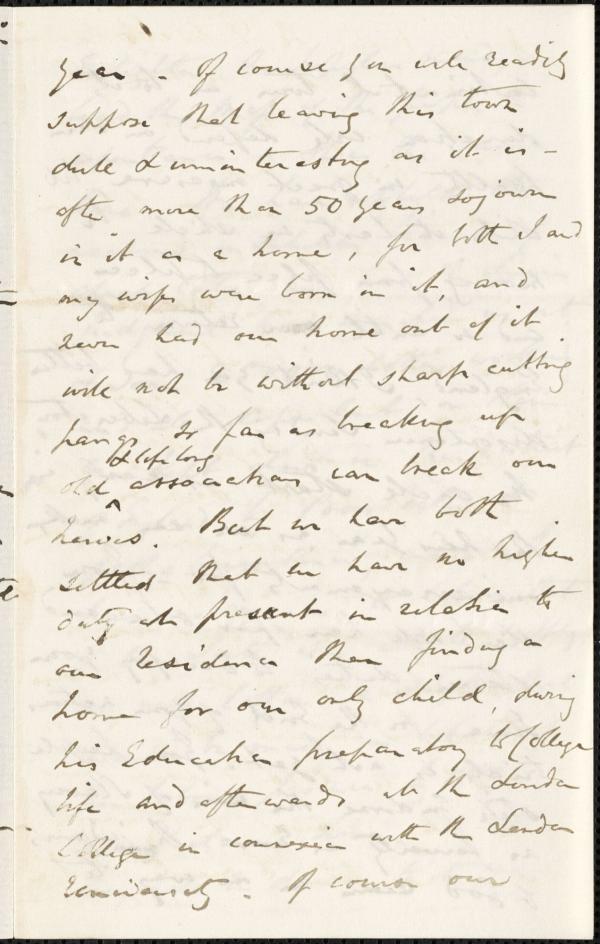 year - Of course you will readily
suppose that leaving this town
dull & uninteresting as it is -
after more than 50 years sojourn
in it as a home, for both I and
my wife were born in it, and
never had our home out of it
will not be without sharp cutting
pangs so far as breaking up
& lifelong
old associations can break our
But we have both
settled that we have no higher
duty at present in relation to
our residence than finding a
home for our only child, during
his Education preparatory to College
life and afterwards at the London
College in connexion with the London
University. Of course our